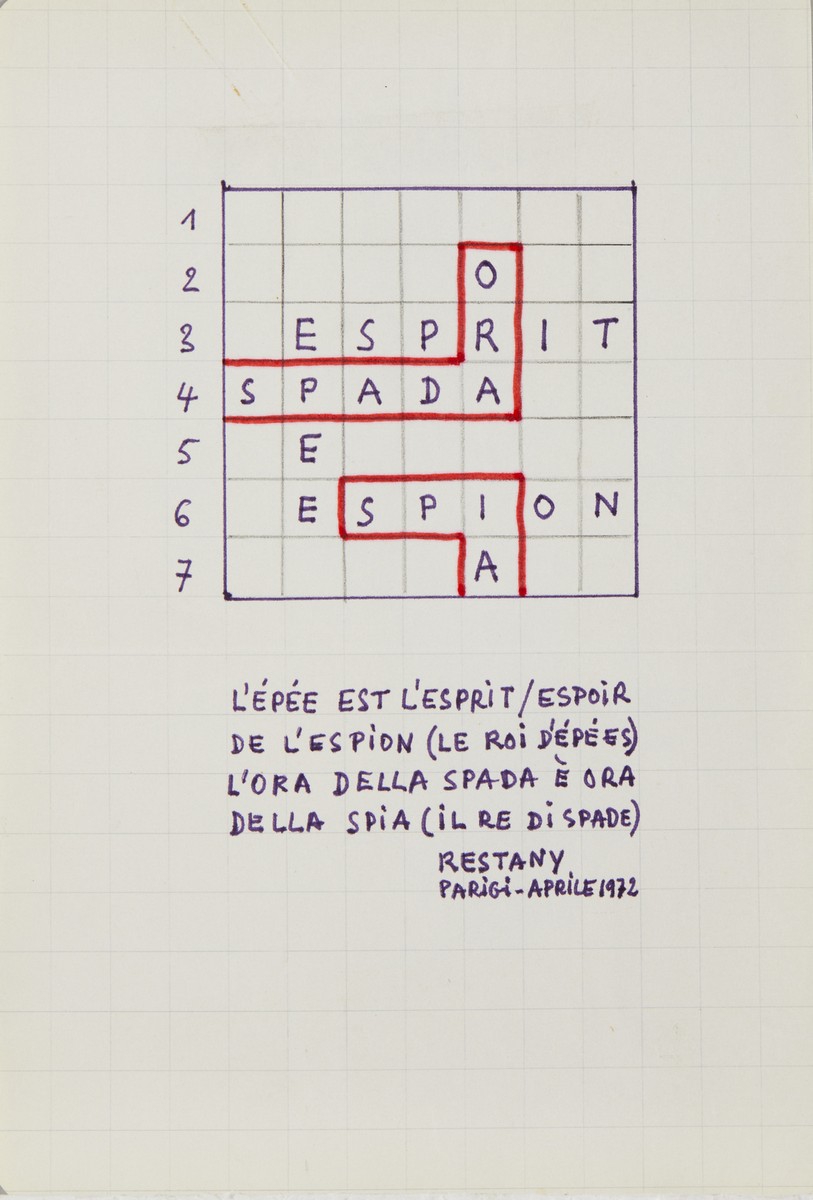 1
2 O
3 E S P R I T
4 S P A D A
5 E
6 E S P I O N
7 A
L'ÉPÉE EST L'ESPRiT/ESPOiR
DE L'ESPiON (LE ROi D'ÉPÉES)
L'ORA DELLA SPADA È ORA
DELLA SPiA (iL RE Di SPADE)
RESTANY
PARiGi-APRiLE 1972